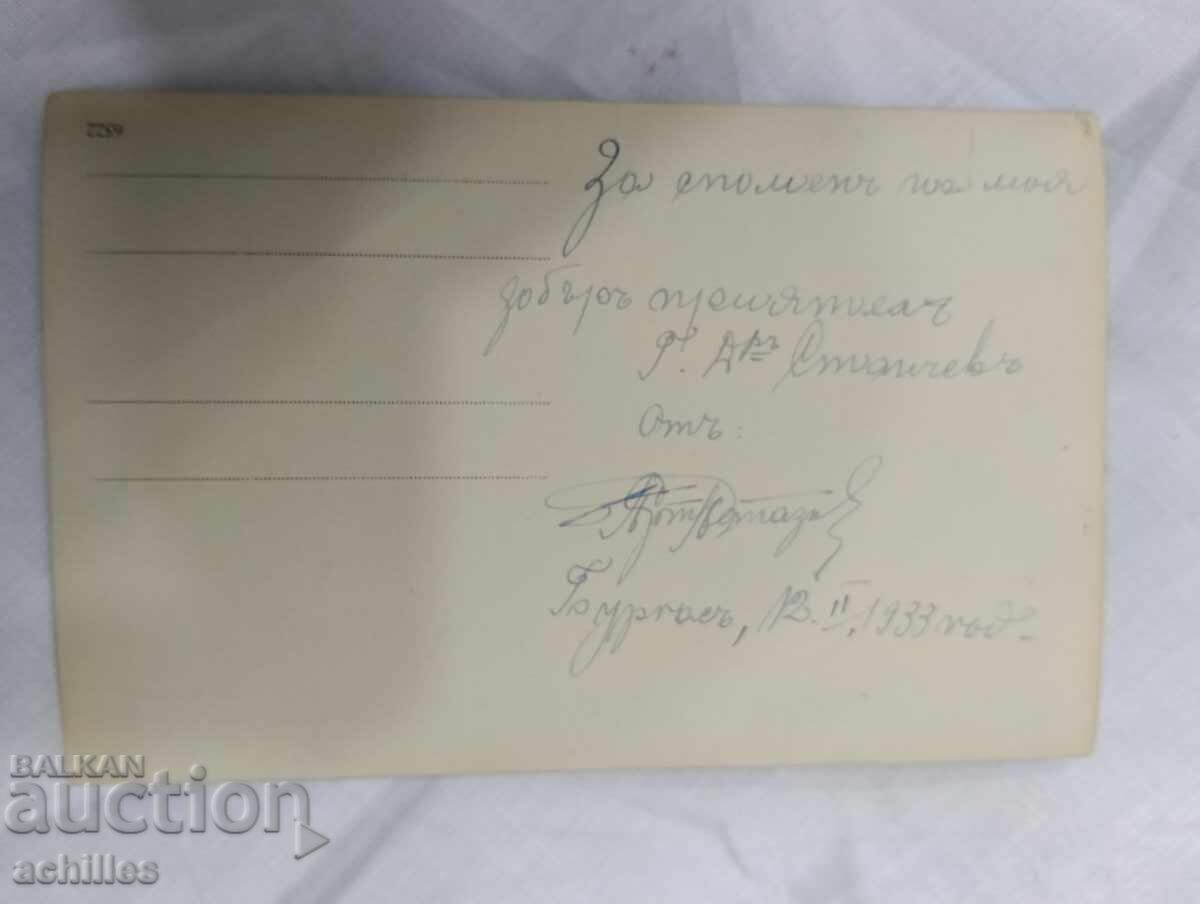 6522
За споменъ на моя
добъръ приятелъ
Г. Д-ръ Стойчевъ
Отъ:
Бургасъ, 12. II. 1933 год.
BALKAN
auction
achilles